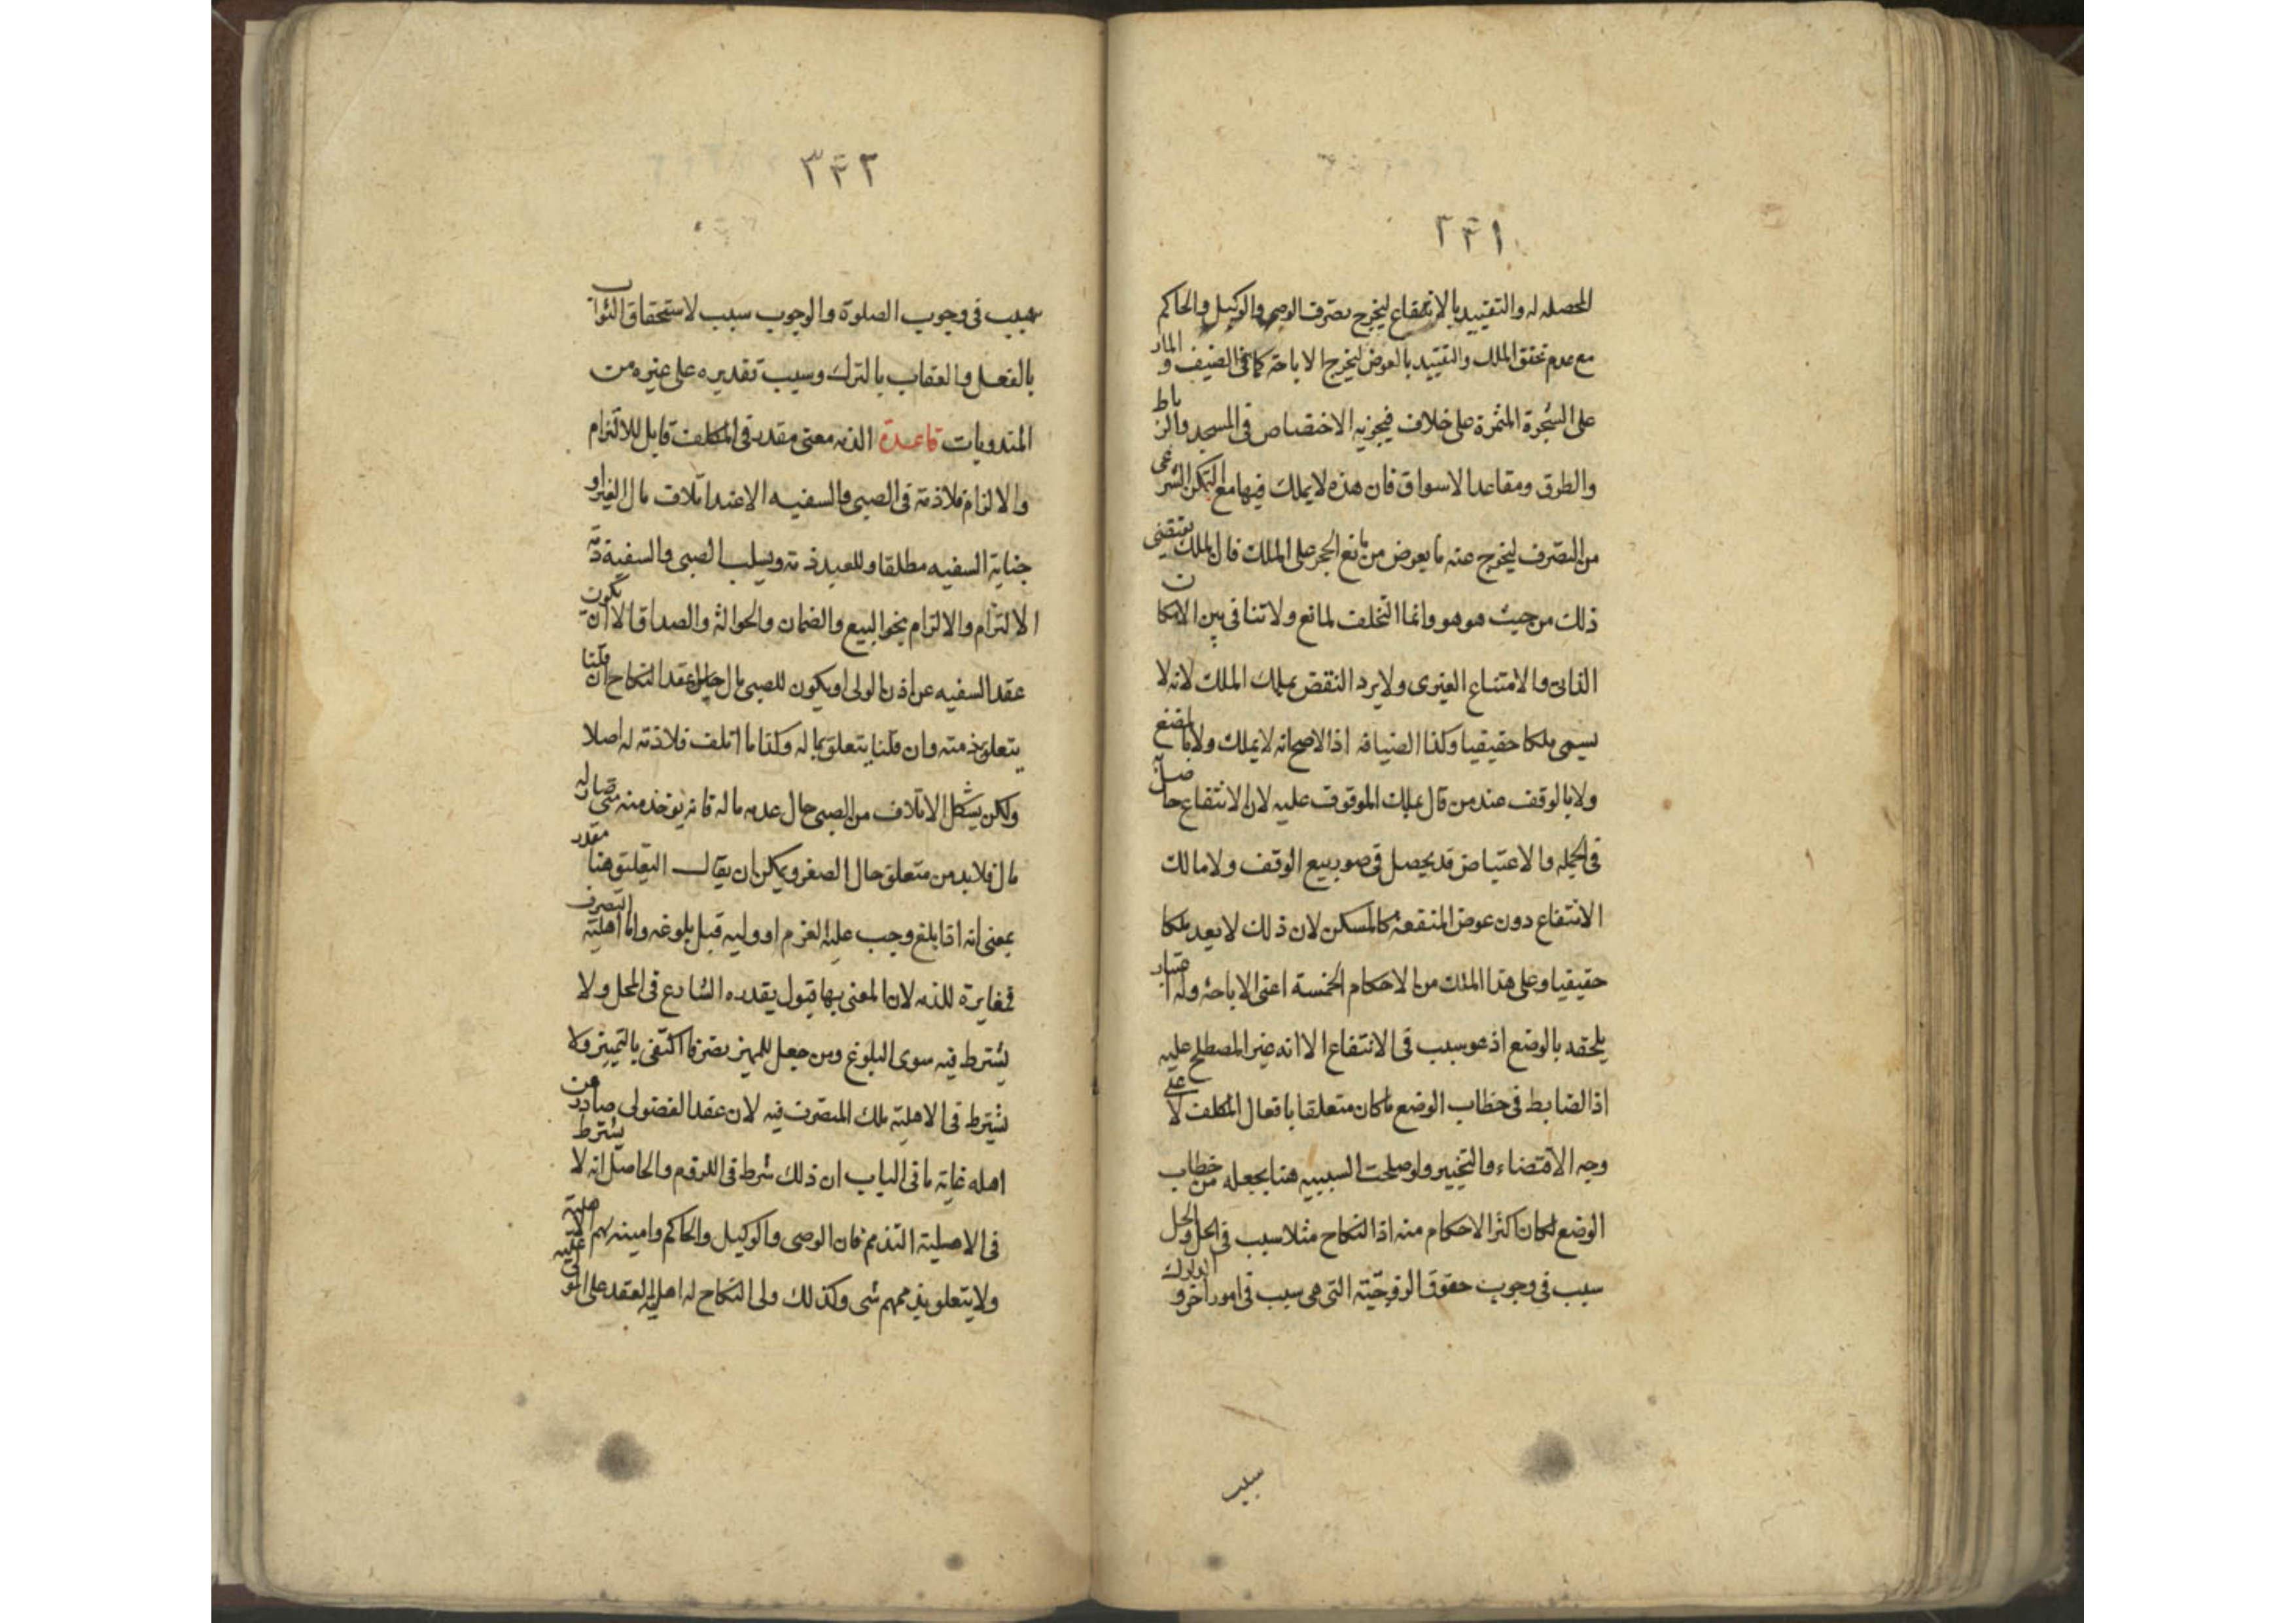 ٣٤١
المحصله له والتقييد بالانتفاع ليخرج تصرف الوصي والوكيل والحاكم
مع عدم تحقق الملك والتقييد بالعوض ليخرج الاباحة كما في الضيف و المار
على الشجرة المثمرة على خلاف فيجوز به الاختصاص في المسجد والرباط
والطرق ومقاعد الاسواق فان هذه لا يملك فيها مع التمكن الشرعي
من التصرف ليخرج عنه ما يعوض من مانع الحجر على الملك فان الملك يقتضي
ذلك من حيث هو هو وانما التخلف لمانع ولا تنافي بين الامكان
الذاتي والامتناع الغيري ولا يرد النقض بملك الملك لانه لا
يسمى ملكا حقيقيا وكذا الضيافة اذ الاصح انه لا يملك ولا بالمضغ
ولا بالوقف عند من قال بملك الموقوف عليه لان الانتفاع حاصل
في الجمله والاعتياض قد يحصل في صور بيع الوقف ولا مالك
الانتفاع دون عوض المنفعة كالمسكن لان ذلك لا يعد ملكا
حقيقيا وعلى هذا الملك من الاحكام الخمسة اعني الاباحة وله اعتبار
يلحقه بالوضع اذ هو سبب في الانتفاع الا انه غير المصطلح عليه
اذ الضابط في خطاب الوضع ما كان متعلقا بافعال المكلف لا على
وجه الاقتضاء والتخيير ولو صلحت السببيه هنا بجعله من خطاب
الوضع لكان اكثر الاحكام منه اذ النكاح مثلا سبب في الحل والحل
سبب في وجوب حقوق الزوجية التي هي سبب في امور اخر و الدلوك
سبب
٣٤٢
سبب في وجوب الصلوة والوجوب سبب لاستحقاق الثواب
بالفعل والعقاب بالترك وسبب تقديره على غيره من
المندوبات قاعدة الذمة معنى مقدر في المكلف قابل للالتزام
والالزام فلا ذمة في الصبي والسفيه الا عند اتلاف مال الغير او
جناية السفيه مطلقا وللعبد ذمة ويسلب الصبي والسفيه ذمة
الالتزام والالزام بنحو البيع والضمان والحوالة والصداق الا ان يكون
عقد السفيه عن اذن الولي او يكون للصبي مال حال عقد النكاح ان قلنا
يتعلق بذمته وان قلنا يتعلق بماله وكذا ما اتلف فلا ذمة له اصلا
ولكن يشكل الاتلاف من الصبي حال عدم ماله فانه يؤخذ منه متى صار له
مال فلا بد من متعلق حال الصغر ويمكن ان يقال التعلق هنا مقدر
بمعنى انه اذا بلغ وجب عليه الغرم او وليه قبل بلوغه واما اهلية التصرف
فمغايرة للذمه لان المعني بها قبول يقدره الشارع في المحل ولا
يشترط فيه سوى البلوغ ومن جعل للمميز تصرفا اكتفى بالتمييز ولا
يشترط في الاهلية ملك المتصرف فيه لان عقد الفضولي صادر من
اهله غاية ما في الباب ان ذلك شرط في اللزوم والحاصل انه لا يشترط
في الاهلية التذمم فان الوصي والوكيل والحاكم وامينه لهم الاهلية
ولا يتعلق بذممهم شي وكذلك ولي النكاح له اهلية العقد على المولى عليه